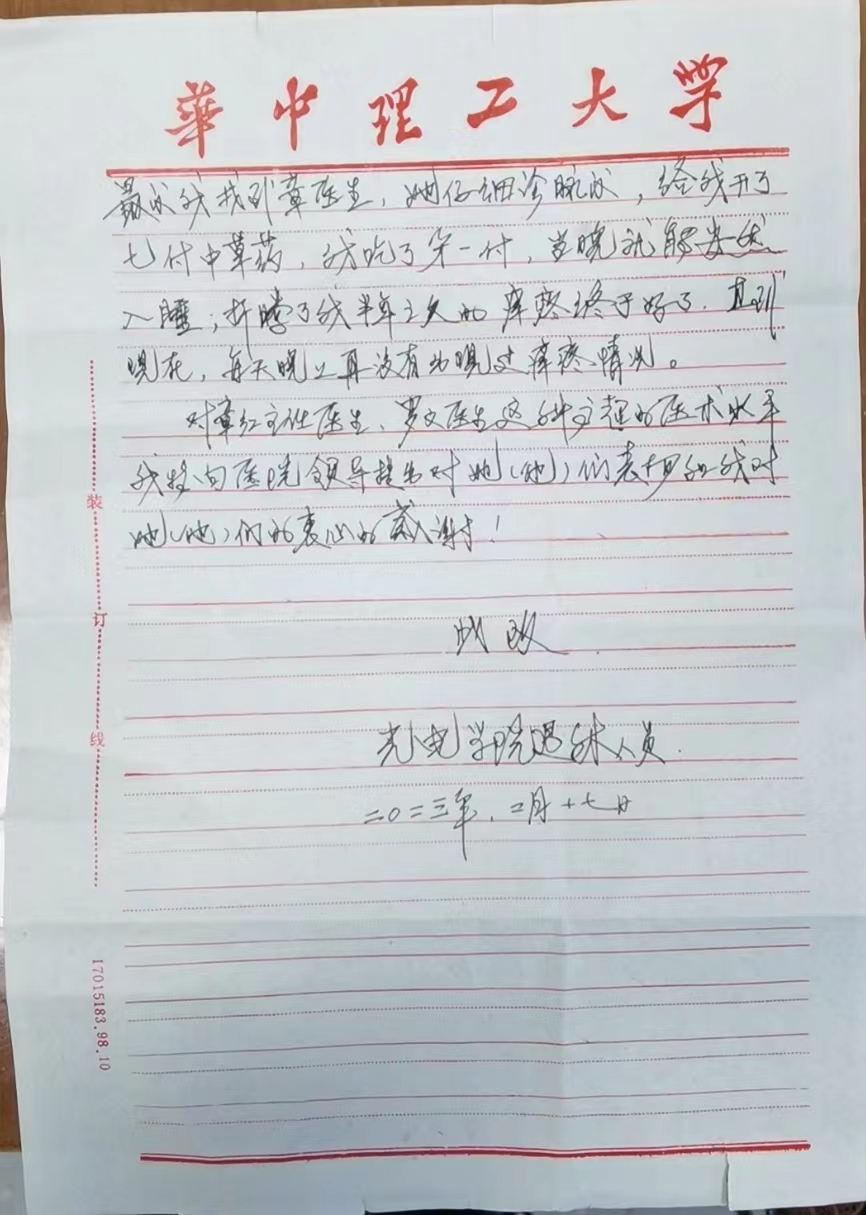 華中理工大学
最后我找到章医生，她仔细诊脉后，给我开了
七付中草药，我吃了第一付，当晚就能安然
入睡；折瞪了我半年之久的痒疼终于好了．直到
现在，每天晚上再没有出现过痒疼情况。
对章红主任医生、罗文医生这种高超的医术水平
我将向医院领导提出对她（他）们表扬和我对
她（他）们的衷心的感谢！
光电学院退休人员．
二〇二三年．二月十七日
装
订
线
17015183.98.10